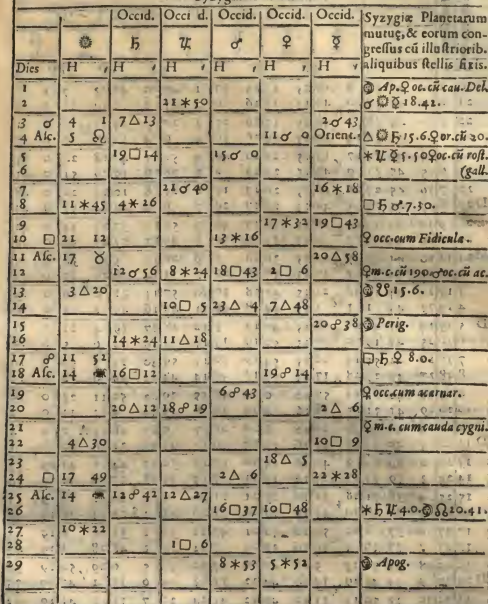 Occid. Occid. Occid. Occid. Occid. Syzygiæ Planetarum
mutuę, & eorum con-
☼ ♄ ♃ ♂ ♀ ☿ greſſus cũ illuſtriorib.
Dies H ′ H ′ H ′ H ′ H ′ H ′ aliquibus ſtellis fixis.
1 Ap. ♀ oc. cũ cau. Del.
2 21 ⚹ 50 ☌ ☼ ☿ 18.42.
3 ☌ 4 1 7 △ 13 2 ☌ 43
4 Aſc. 5 ♌ 11 ☌ 0 Orient. △ ☼ ♄ 15.6. ♀ or. cũ 20.
5 19 □ 14 15 ☌ 0 ⚹ ♃ ☿ 5.50 ♀ oc. cũ roſt.
6 (gall.
7 21 ☌ 40 16 ⚹ 18
8 11 ⚹ 45 4 ⚹ 26 □ ♄ ♂ 7.30.
9 17 ⚹ 32 19 □ 43
10 □ 21 12 13 ⚹ 16 ♀ occ. cum Fidicula.
11 Aſc. 17 ♉ 20 △ 58
12 12 ☌ 56 8 ⚹ 24 18 □ 43 2 □ 6 ♀ m. c. cũ 190 ♂ oc. cũ ac.
13 3 △ 20 ☋ 15.6.
14 10 □ 5 23 △ 4 7 △ 48
15 20 ☍ 38 Perig.
16 14 ⚹ 24 11 △ 18
17 ☍ 11 52 □ ♄ ♀ 8.0.
18 Aſc. 14 ♒ 16 □ 12 19 ☍ 14
19 6 ☍ 43 ♀ occ. cum acarnar.
20 20 △ 12 18 ☍ 19 2 △ 6
21 ☿ m. c. cum cauda cygni.
22 4 △ 30 10 □ 9
23 18 △ 5
24 □ 17 49 2 △ 6 22 ⚹ 28
25 Aſc. 14 ♒ 12 ☍ 42 12 △ 27
26 16 □ 37 10 □ 48 ⚹ ♄ ♃ 4.0. ☊ 20.41.
27 10 ⚹ 22
28 1 □ 6
29 8 ⚹ 53 5 ⚹ 52 Apog.